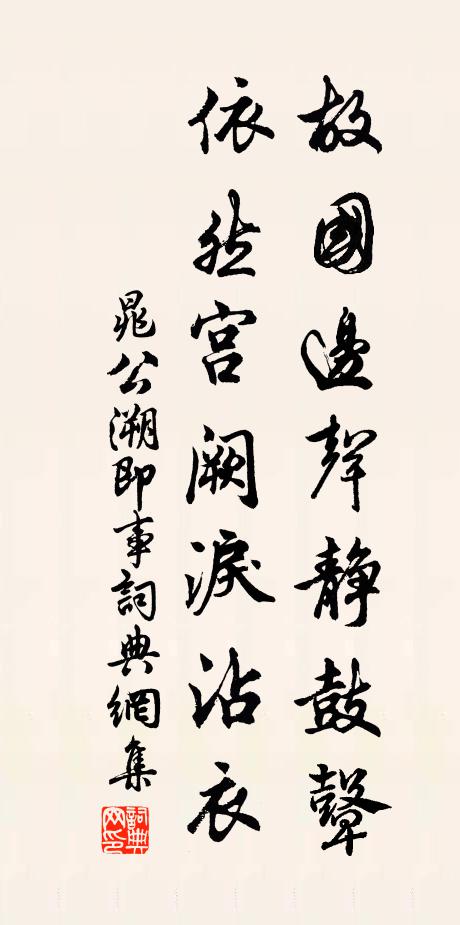 故國邊聲靜鼓鼙
依然宮闕淚沾衣
晁公溯即事詞典網集
詞典网印